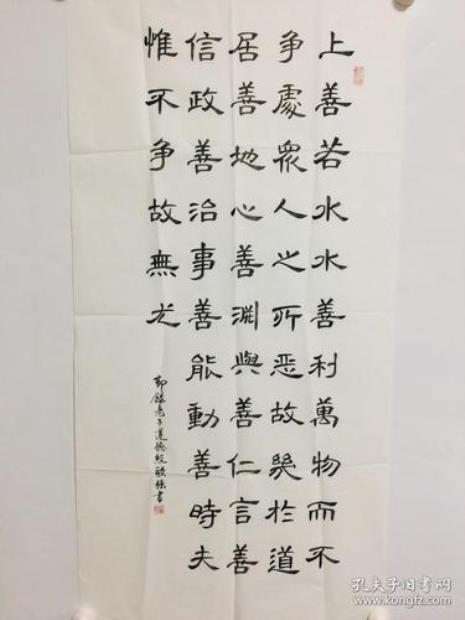 上善若水水善利萬物而不
争處衆人之所恶故幾於道
居善地心善淵與善仁言善
信政善治事善能動善時夫
惟不争故無尤
節録老子道德经
書
孔夫子旧书网
www.kongfz.com